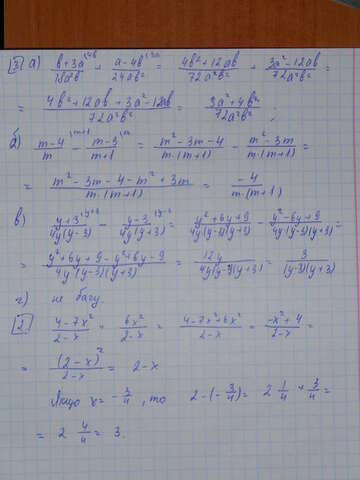 3 а) (b+3a)/(18a²b) \4b + (a-4b)/(24ab²) \3a = (4b²+12ab)/(72a²b²) + (3a²-12ab)/(72a²b²) =
= (4b²+12ab+3a²-12ab)/(72a²b²) = (3a²+4b²)/(72a²b²) ;
б) (m-4)/m \m+1 - (m-3)/(m+1) \m = (m²-3m-4)/(m·(m+1)) - (m²-3m)/(m·(m+1)) =
= (m²-3m-4-m²+3m)/(m·(m+1)) = (-4)/(m·(m+1))
в) (y+3)/(4y(y-3)) \y+3 - (y-3)/(4y(y+3)) \y-3 = (y²+6y+9)/(4y(y-3)(y+3)) - (y²-6y+9)/(4y(y-3)(y+3)) =
= (y²+6y+9-y²+6y-9)/(4y(y-3)(y+3)) = (12y)/(4y(y-3)(y+3)) = 3/((y-3)(y+3))
г) не бачу.
2. (4-7x²)/(2-x) = (6x²)/(2-x) = (4-7x²+6x²)/(2-x) = (-x²+4)/(2-x) =
= (2-x)²/(2-x) = 2-x
Якщо x = -3/4, то 2-(-3/4) = 2 1/4 + 3/4 =
= 2 4/4 = 3.